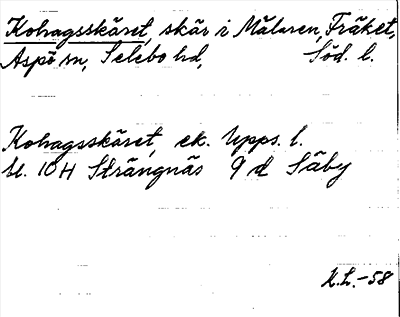 Kohagsskäret, skär i Mälaren, Fräket,
Aspö sn, Selebo hd, Söd. l.
Kohagsskäret, ek. Upps. l.
bl. 10 H Strängnäs 9 d Säby
K.L.-58